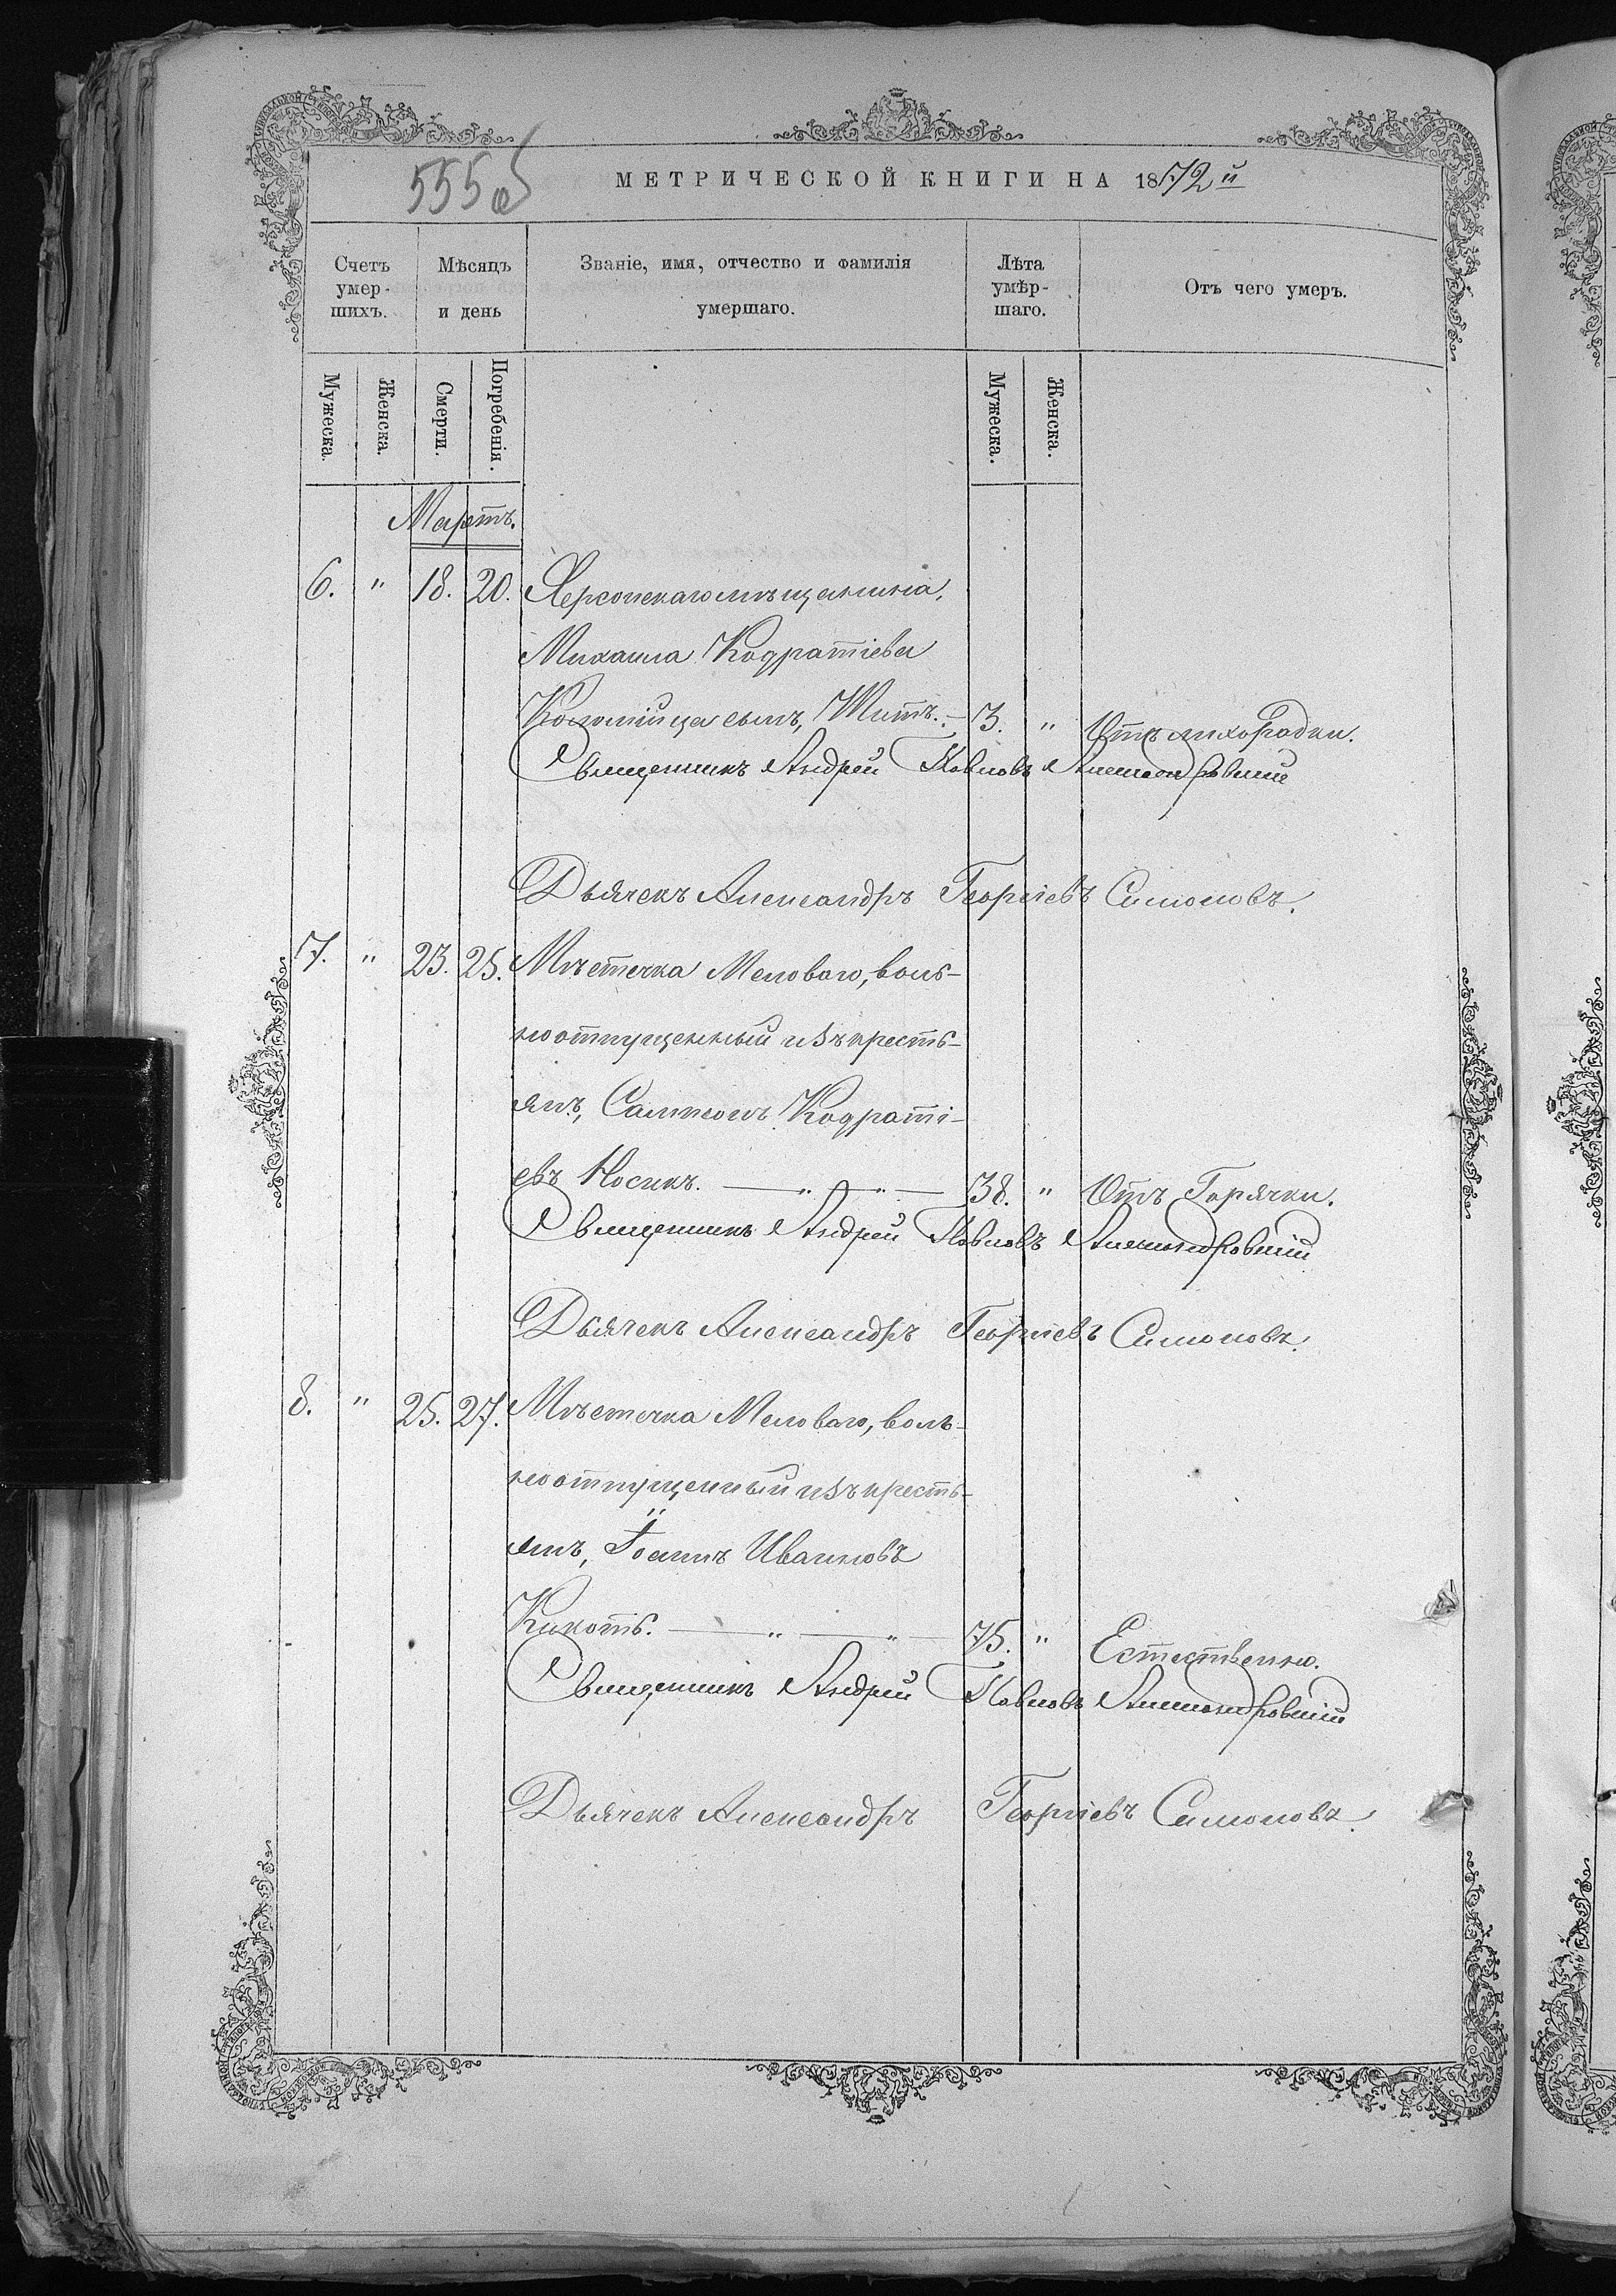 555 об
МЕТРИЧЕСКОЙ КНИГИ НА 1872й
Счетъ умер-шихъ.
Мѣсяцъ и день
Званіе, имя, отчество и фамилія умершаго.
Лѣта умѣр-шаго.
Отъ чего умеръ.
Мужеска.
Женска.
Смерти.
Погребенія.
Мужеска.
Женска.
Мартъ.
6. " 18. 20. Херсонскаго мѣщанина,
Михаила Кодратіева
сынъ, Титъ. - 3. " Отъ лихорадки.
Священникъ Андрей Павловъ Александровскій
Дьячекъ Александръ Георгіевъ Симоновъ.
7. " 23. 25. Мѣстечка Меловаго, воль-
ноотпущенный изъ кресть-
янъ, Сампсонъ Кодраті-
евъ Носикъ. — " — " — 38. " Отъ Горячки.
Священникъ Андрей Павловъ Александровскій
Дьячекъ Александръ Георгіевъ Симоновъ.
8. " 25. 27. Мѣстечка Меловаго, воль-
ноотпущенный изъ кресть-
янъ, Іоаннъ Ивановъ
Кикоть. — " — " — 75. " Естественно.
Священникъ Андрей Павловъ Александровскій
Дьячекъ Александръ Георгіевъ Симоновъ.